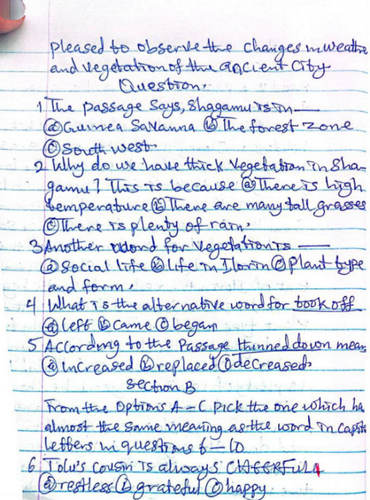 pleased to observe the changes in weathe
and vegetation of the ancient city
Question.
1 The passage says, Shagamu is in ____
(a) Guinea Savanna (b) The forest zone
(c) South west.
2 Why do we have thick vegetation in Sha-
gamu? This is because (a) There is high
temperature (b) There are many tall grasses
(c) There is plenty of rain.
3 Another word for vegetation is ____
(a) Social life (b) life in Ilorin (c) plant type
and form.
4 What is the alternative word for took off
(a) left (b) came (c) began
5 According to the passage thinned down mean
(a) increased (b) replaced (c) decreased.
Section B
From the options A-C pick the one which ha
almost the same meaning as the word in Capit
letters in questions 6-10
6 Tolu's cousin is always CHEERFUL
(a) restless (b) grateful (c) happy